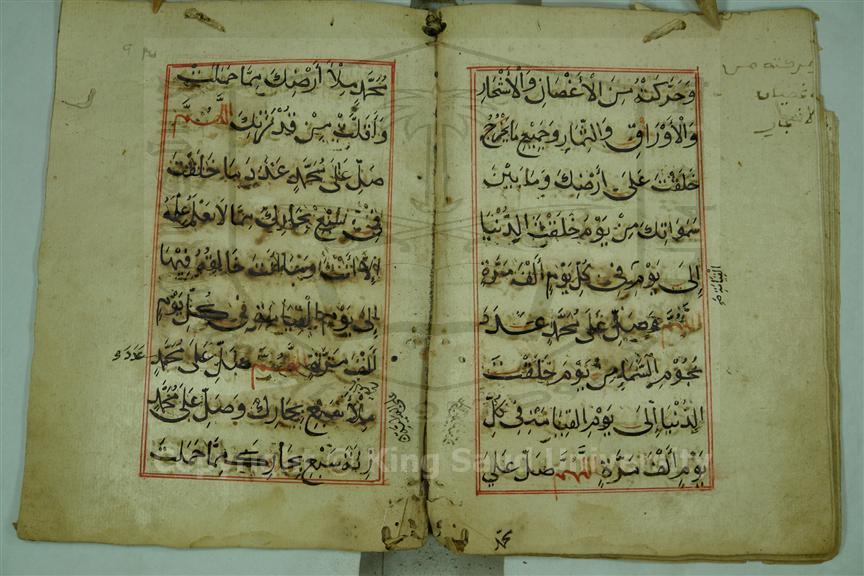 وَحَرَّكَتْهُ مِنَ الْأَغْصَانِ وَالْأَشْجَارِ
وَالْأَوْرَاقِ وَالثِّمَارِ وَجَمِيعِ مَا يَخْرُجُ
خَلَقْتَ عَلَى أَرْضِكَ وَمَا بَيْنَ
سَمٰوَاتِكَ مِنْ يَوْمِ خَلَقْتَ الدُّنْيَا
إِلَى يَوْمِ فِي كُلِّ يَوْمٍ أَلْفَ مَرَّةٍ
القيامة
اللّٰهُمَّ صَلِّ عَلَى مُحَمَّدٍ عَدَدَ
نُجُومِ السَّمَاءِ مِنْ يَوْمِ خَلَقْتَ
الدُّنْيَا إِلَى يَوْمِ الْقِيَامَةِ فِي كُلِّ
يَوْمٍ أَلْفَ مَرَّةٍ اللّٰهُمَّ صَلِّ عَلَى
محمد
من
الاشجار
مُحَمَّدٍ مِلْأَ أَرْضِكَ مِمَّا حَمَلَتْ
وَأَقَلَّتْ مِنْ قُدْرَتِكَ اللّٰهُمَّ
صَلِّ عَلَى مُحَمَّدٍ عَدَدَ مَا خَلَقْتَ
فِي سَبْعِ بِحَارِكَ مِمَّا لَا يَعْلَمُ عِلْمَهُ
إِلَّا أَنْتَ وَمَا أَنْتَ خَالِقُهُ فِيهَا
إِلَى يَوْمِ الْقِيَامَةِ فِي كُلِّ يَوْمٍ
أَلْفَ مَرَّةٍ اللّٰهُمَّ صَلِّ عَلَى مُحَمَّدٍ
عدد
مِلْأَ سَبْعِ بِحَارِكَ وَصَلِّ عَلَى مُحَمَّدٍ
زِنَةَ سَبْعِ بِحَارِكَ مِمَّا حَمَلَتْ